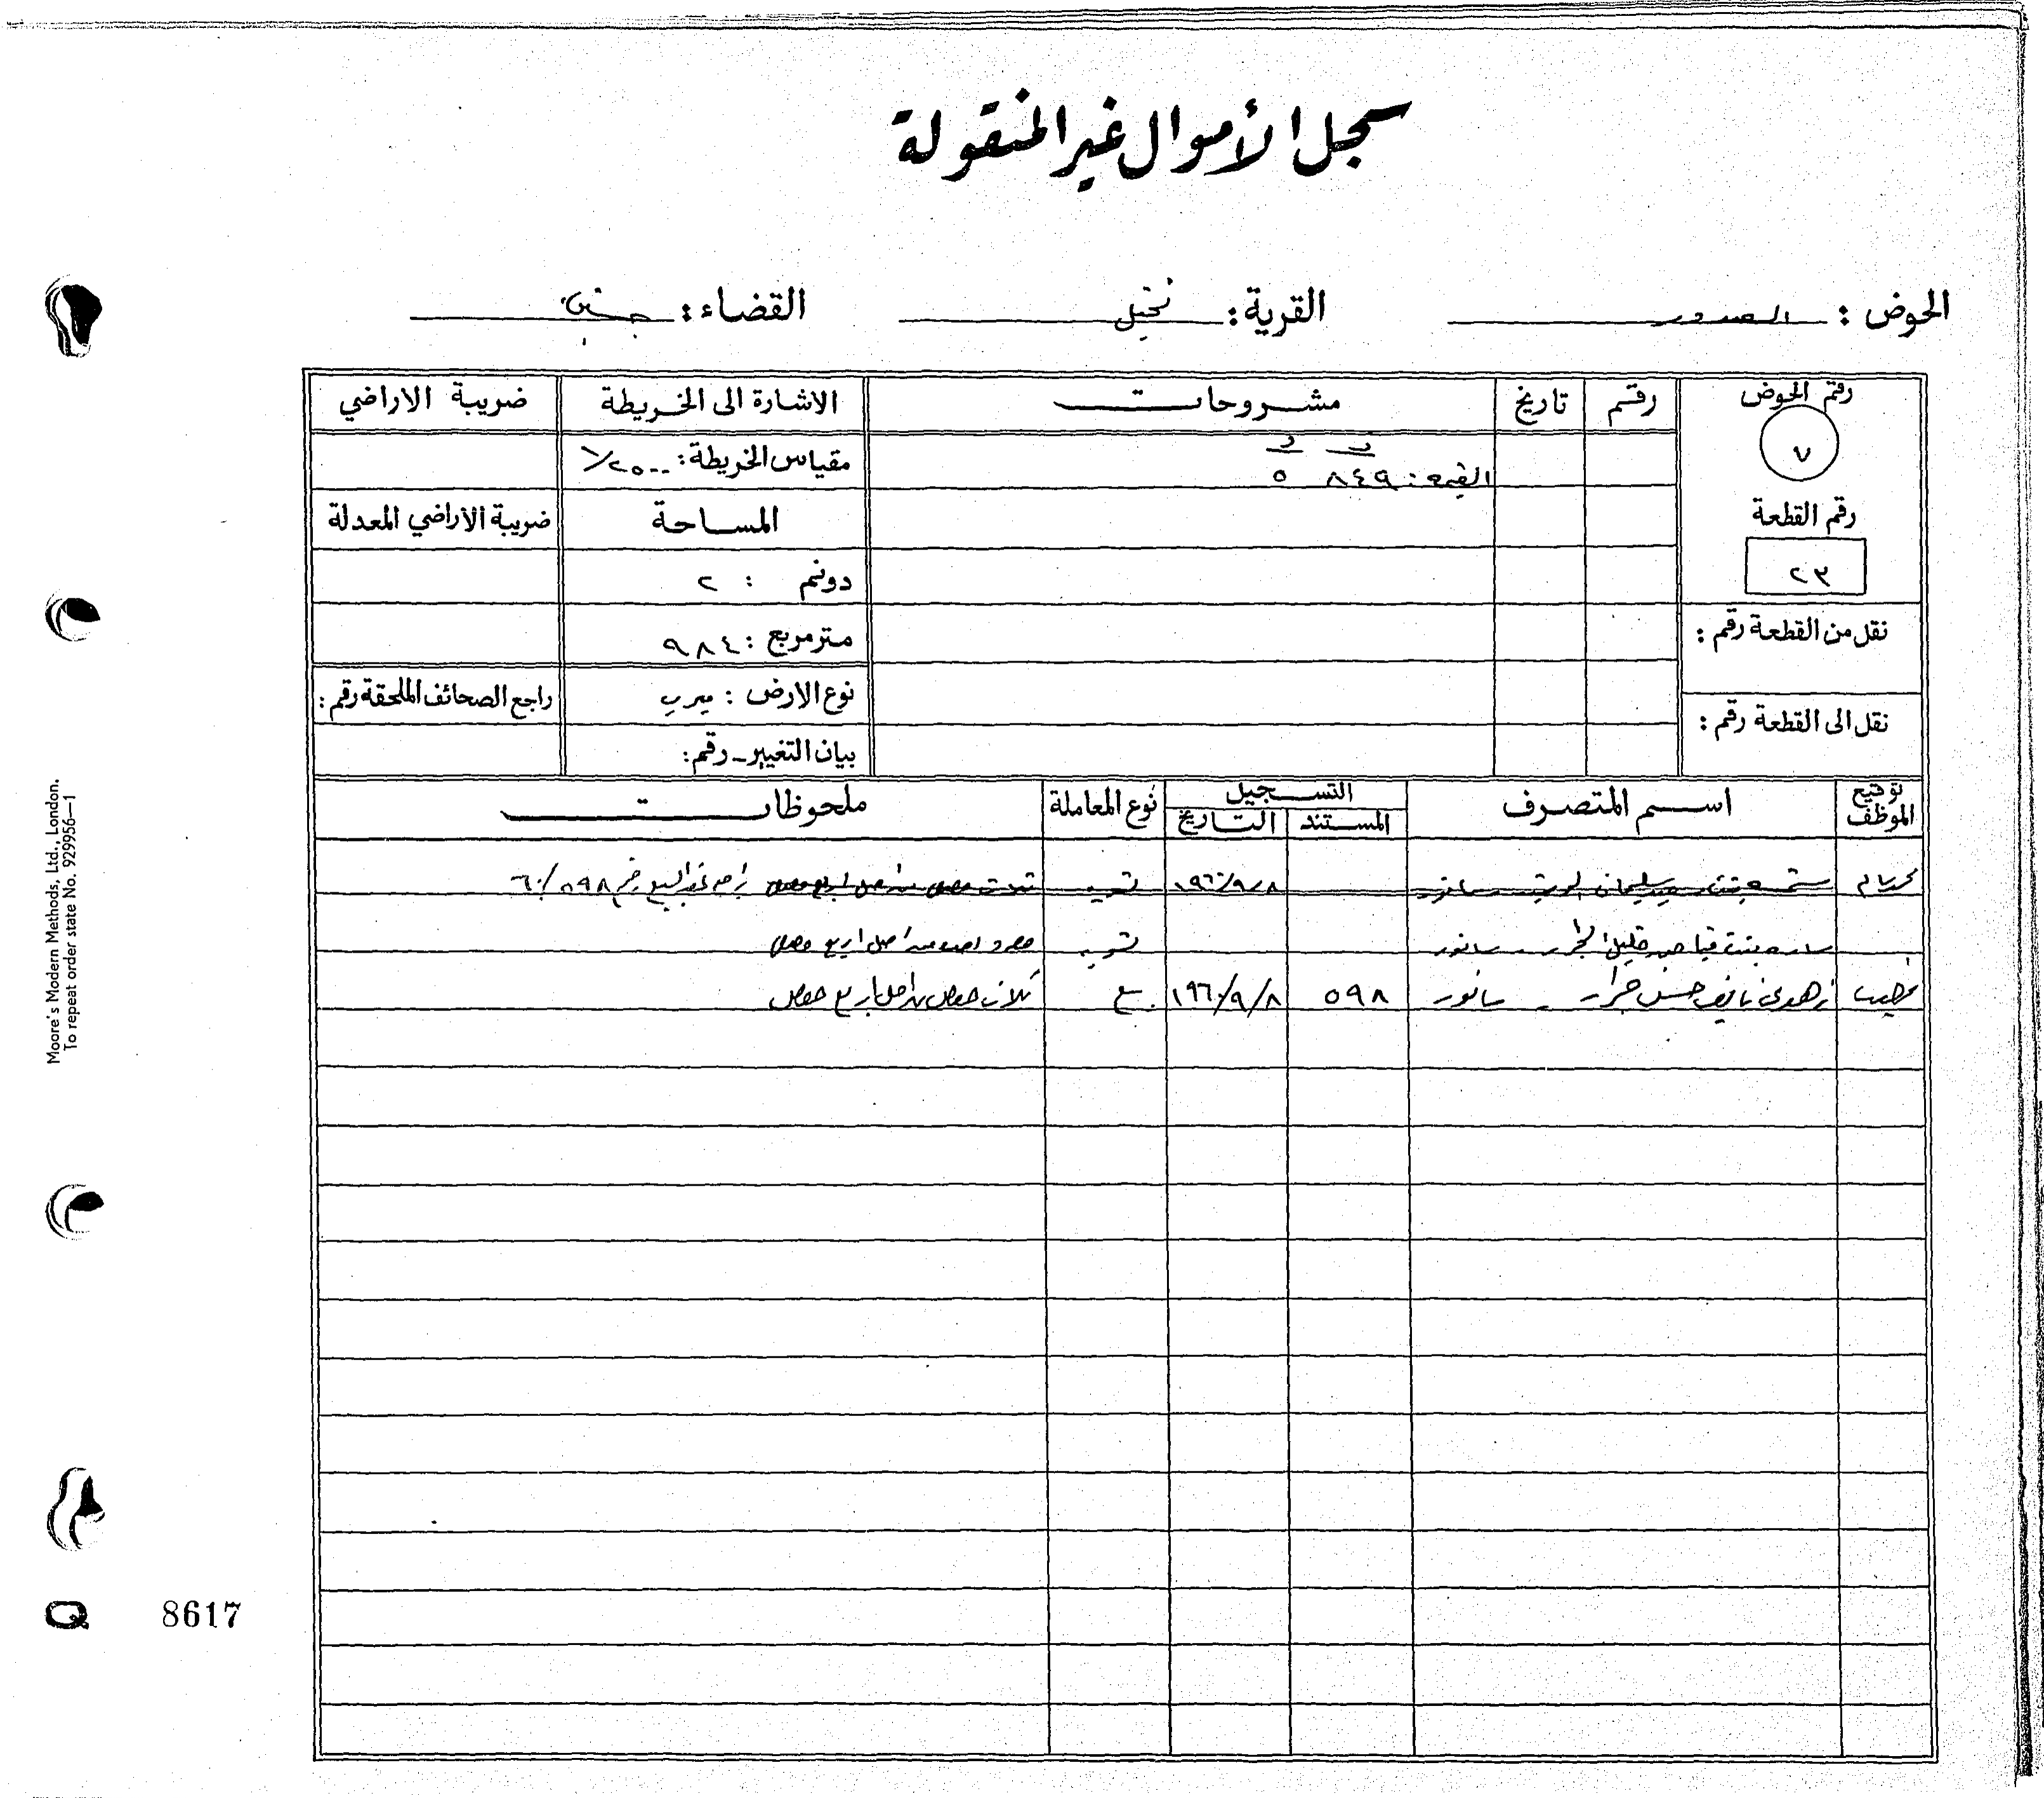 سجل الأموال غير المنقولة
الحوض : الصدور القرية : نخيل القضاء : جنين
رقم الحوض رقم تاريخ مشروحات الاشارة الى الخريطة ضريبة الاراضي
٧
القيمة : ٨٤٩ ٥ مقياس الخريطة : ١/٢٥٠٠
رقم القطعة المساحة ضريبة الاراضي المعدلة
٢٣ دونم : ٢
نقل من القطعة رقم : متر مربع : ٩٨٤
نوع الارض : ميري راجع الصحائف الملحقة رقم :
نقل الى القطعة رقم : بيان التغيير - رقم :
توقيع الموظف اسم المتصرف التسجيل نوع المعاملة ملحوظات
المستند التاريخ
بنت سليمان سانور ١٩٦٠/٩/٨ تسوية ثلاث حصص من اصل اربع حصص راجع عقد البيع رقم ٦٠/٥٩٨
ساره بنت خليل الجرار - سانور تسوية حصة واحدة من اصل اربع حصص
زهدي نايف حسن جرار - سانور ٥٩٨ ١٩٦٠/٩/٨ بيع ثلاث حصص من اصل اربع حصص
Moore's Modern Methods, Ltd., London.
To repeat order state No. 929956—1
Q 8617